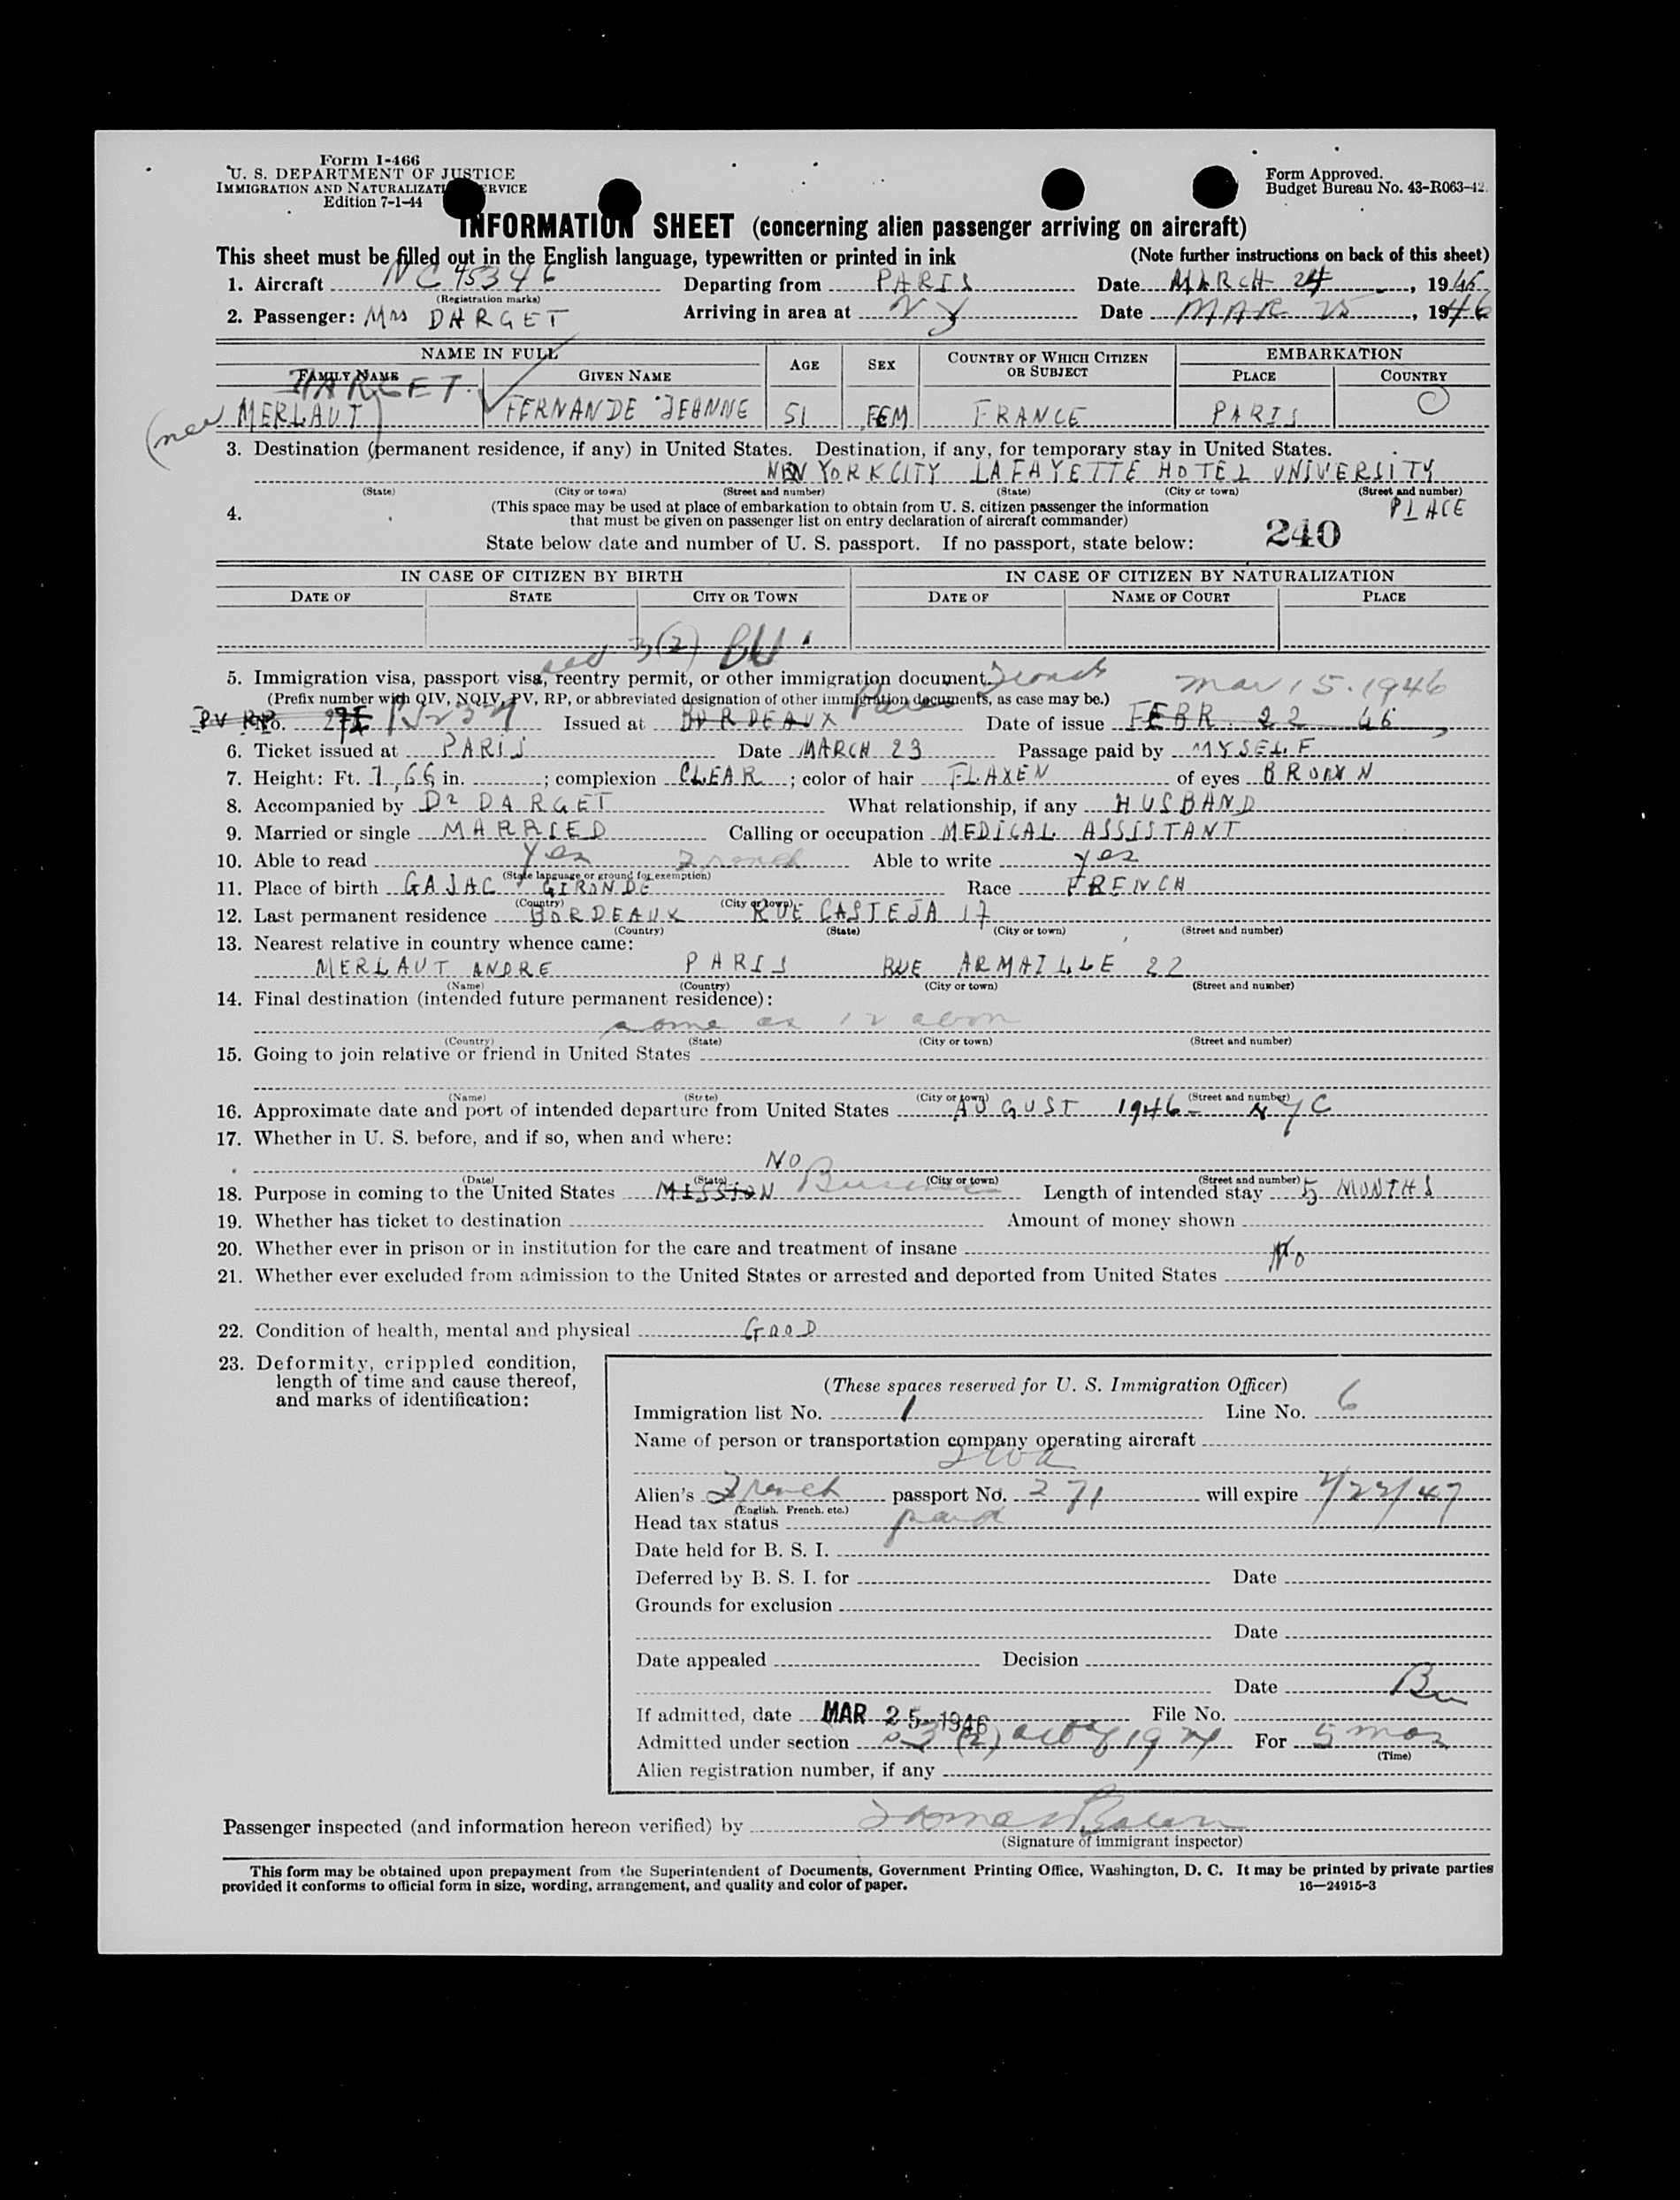 Form I-466
U. S. DEPARTMENT OF JUSTICE
IMMIGRATION AND NATURALIZATION SERVICE
Edition 7-1-44
Form Approved.
Budget Bureau No. 43-R063-42.
INFORMATION SHEET (concerning alien passenger arriving on aircraft)
This sheet must be filled out in the English language, typewritten or printed in ink (Note further instructions on back of this sheet)
1. Aircraft NC 45346 Departing from PARIS Date MARCH 24, 1946
(Registration marks)
2. Passenger: Mrs DARGET Arriving in area at NY Date MAR 25, 1946
NAME IN FULL AGE SEX COUNTRY OF WHICH CITIZEN OR SUBJECT EMBARKATION
FAMILY NAME GIVEN NAME PLACE COUNTRY
DARGET
(nee MERLAUT) FERNANDE JEANNE 51 FEM FRANCE PARIS
3. Destination (permanent residence, if any) in United States. Destination, if any, for temporary stay in United States.
NEW YORK CITY LAFAYETTE HOTEL UNIVERSITY
(State) (City or town) (Street and number) (State) (City or town) (Street and number)
PLACE
4. (This space may be used at place of embarkation to obtain from U. S. citizen passenger the information
that must be given on passenger list on entry declaration of aircraft commander)
State below date and number of U. S. passport. If no passport, state below: 240
IN CASE OF CITIZEN BY BIRTH IN CASE OF CITIZEN BY NATURALIZATION
DATE OF STATE CITY OR TOWN DATE OF NAME OF COURT PLACE
3(2)
5. Immigration visa, passport visa, reentry permit, or other immigration document. French
(Prefix number with QIV, NQIV, PV, RP, or abbreviated designation of other immigration documents, as case may be.) Mar 15. 1946
Paris
PV RP No. 271 Issued at BORDEAUX Date of issue FEBR 22 46
6. Ticket issued at PARIS Date MARCH 23 Passage paid by MYSELF
7. Height: Ft. 1,66 in. ; complexion CLEAR ; color of hair FLAXEN of eyes BROWN
8. Accompanied by Dr DARGET What relationship, if any HUSBAND
9. Married or single MARRIED Calling or occupation MEDICAL ASSISTANT
10. Able to read yes French Able to write yes
(State language or ground for exemption)
11. Place of birth GAJAC GIRONDE Race FRENCH
(Country) (City or town)
12. Last permanent residence BORDEAUX RUE CASTEJA 17
(Country) (State) (City or town) (Street and number)
13. Nearest relative in country whence came:
MERLAUT ANDRE PARIS RUE ARMAILLE 22
(Name) (Country) (City or town) (Street and number)
14. Final destination (intended future permanent residence):
same as 12 above
(Country) (State) (City or town) (Street and number)
15. Going to join relative or friend in United States
(Name) (State) (City or town) (Street and number)
16. Approximate date and port of intended departure from United States AUGUST 1946 - NYC
17. Whether in U. S. before, and if so, when and where:
NO
(Date) (State) (City or town) (Street and number)
18. Purpose in coming to the United States MISSION Business Length of intended stay 5 MONTHS
19. Whether has ticket to destination Amount of money shown
20. Whether ever in prison or in institution for the care and treatment of insane No
21. Whether ever excluded from admission to the United States or arrested and deported from United States
22. Condition of health, mental and physical GOOD
23. Deformity, crippled condition,
length of time and cause thereof,
and marks of identification:
(These spaces reserved for U. S. Immigration Officer)
Immigration list No. 1 Line No. 6
Name of person or transportation company operating aircraft
TWA
Alien's French passport No. 271 will expire 2/22/47
(English, French, etc.)
Head tax status paid
Date held for B. S. I.
Deferred by B. S. I. for Date
Grounds for exclusion
Date
Date appealed Decision
Date
If admitted, date MAR 25 1946 File No.
Admitted under section 3(2) act of 1924 For 5 mos
(Time)
Alien registration number, if any
Passenger inspected (and information hereon verified) by
(Signature of immigrant inspector)
This form may be obtained upon prepayment from the Superintendent of Documents, Government Printing Office, Washington, D. C. It may be printed by private parties
provided it conforms to official form in size, wording, arrangement, and quality and color of paper. 16—24915-3